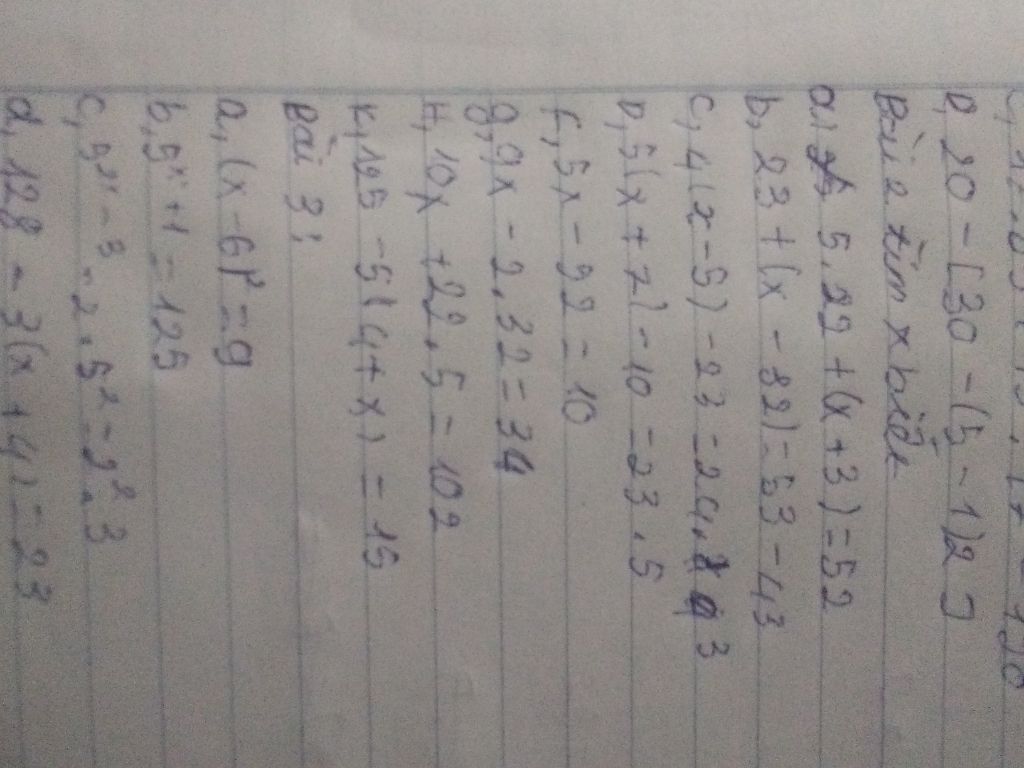 D, 20 - [30 - (5 - 1)2 ]
Bài 2 tìm x biết
a) 5.22 + (x + 3) = 52
b, 23 + (x - 32) = 53 - 43
c, 4(x - 5) - 23 = 24.3
D, 5(x + 7) - 10 = 23.5
f, 5x - 52 = 10
g, 9x - 2.32 = 34
H, 10x + 22.5 = 102
K, 125 - 5(4 + x) = 15
Bài 3:
a, (x - 6)² = 9
b, 5ˣ⁺¹ = 125
c, 5²ˣ⁻³ - 2.5² = 5².3
d, 128 - 3(x + 4) = 23